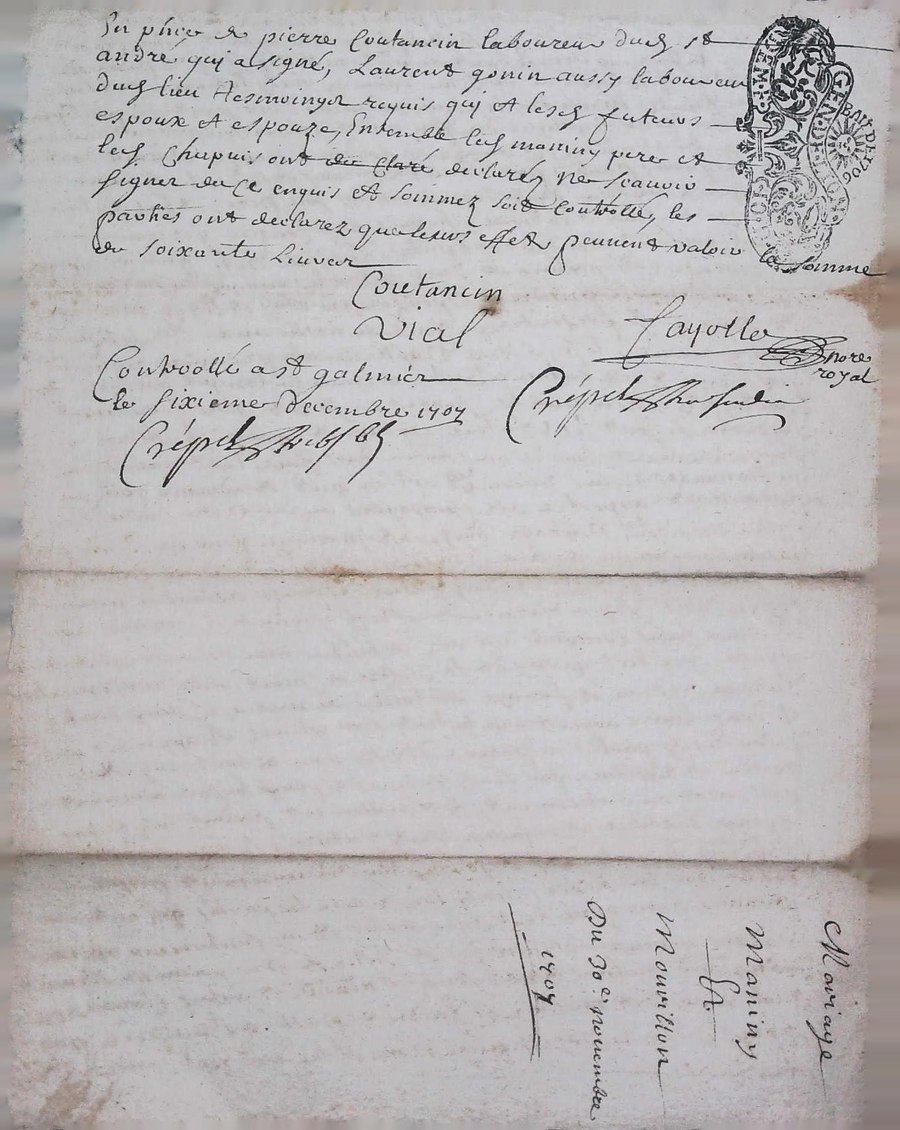 En pñce de pierre Coutancin laboureur dud st
andré qui a signé, Laurent gonin aussy laboureur
dud lieu tesmoings requis qui et lesd futeurs
espoux et espouze, Ensemble led maniny pere et
led Chapuis ont de claré declarés ne scavoir
signer de ce enquis et sommez soit Controllé, les
parties ont declarez que leurs effets peuvent valoir la somme
de soixante Livres
Coutancin
Vial
Cayolle
nore
royal
Controollé a st galmier
le sixieme decembre 1707
Crépet
Crépet
GEN·D·
BAIL DE 1706
Mariage
Maniny
&
Mourillon
Du 30e. novembre
1707